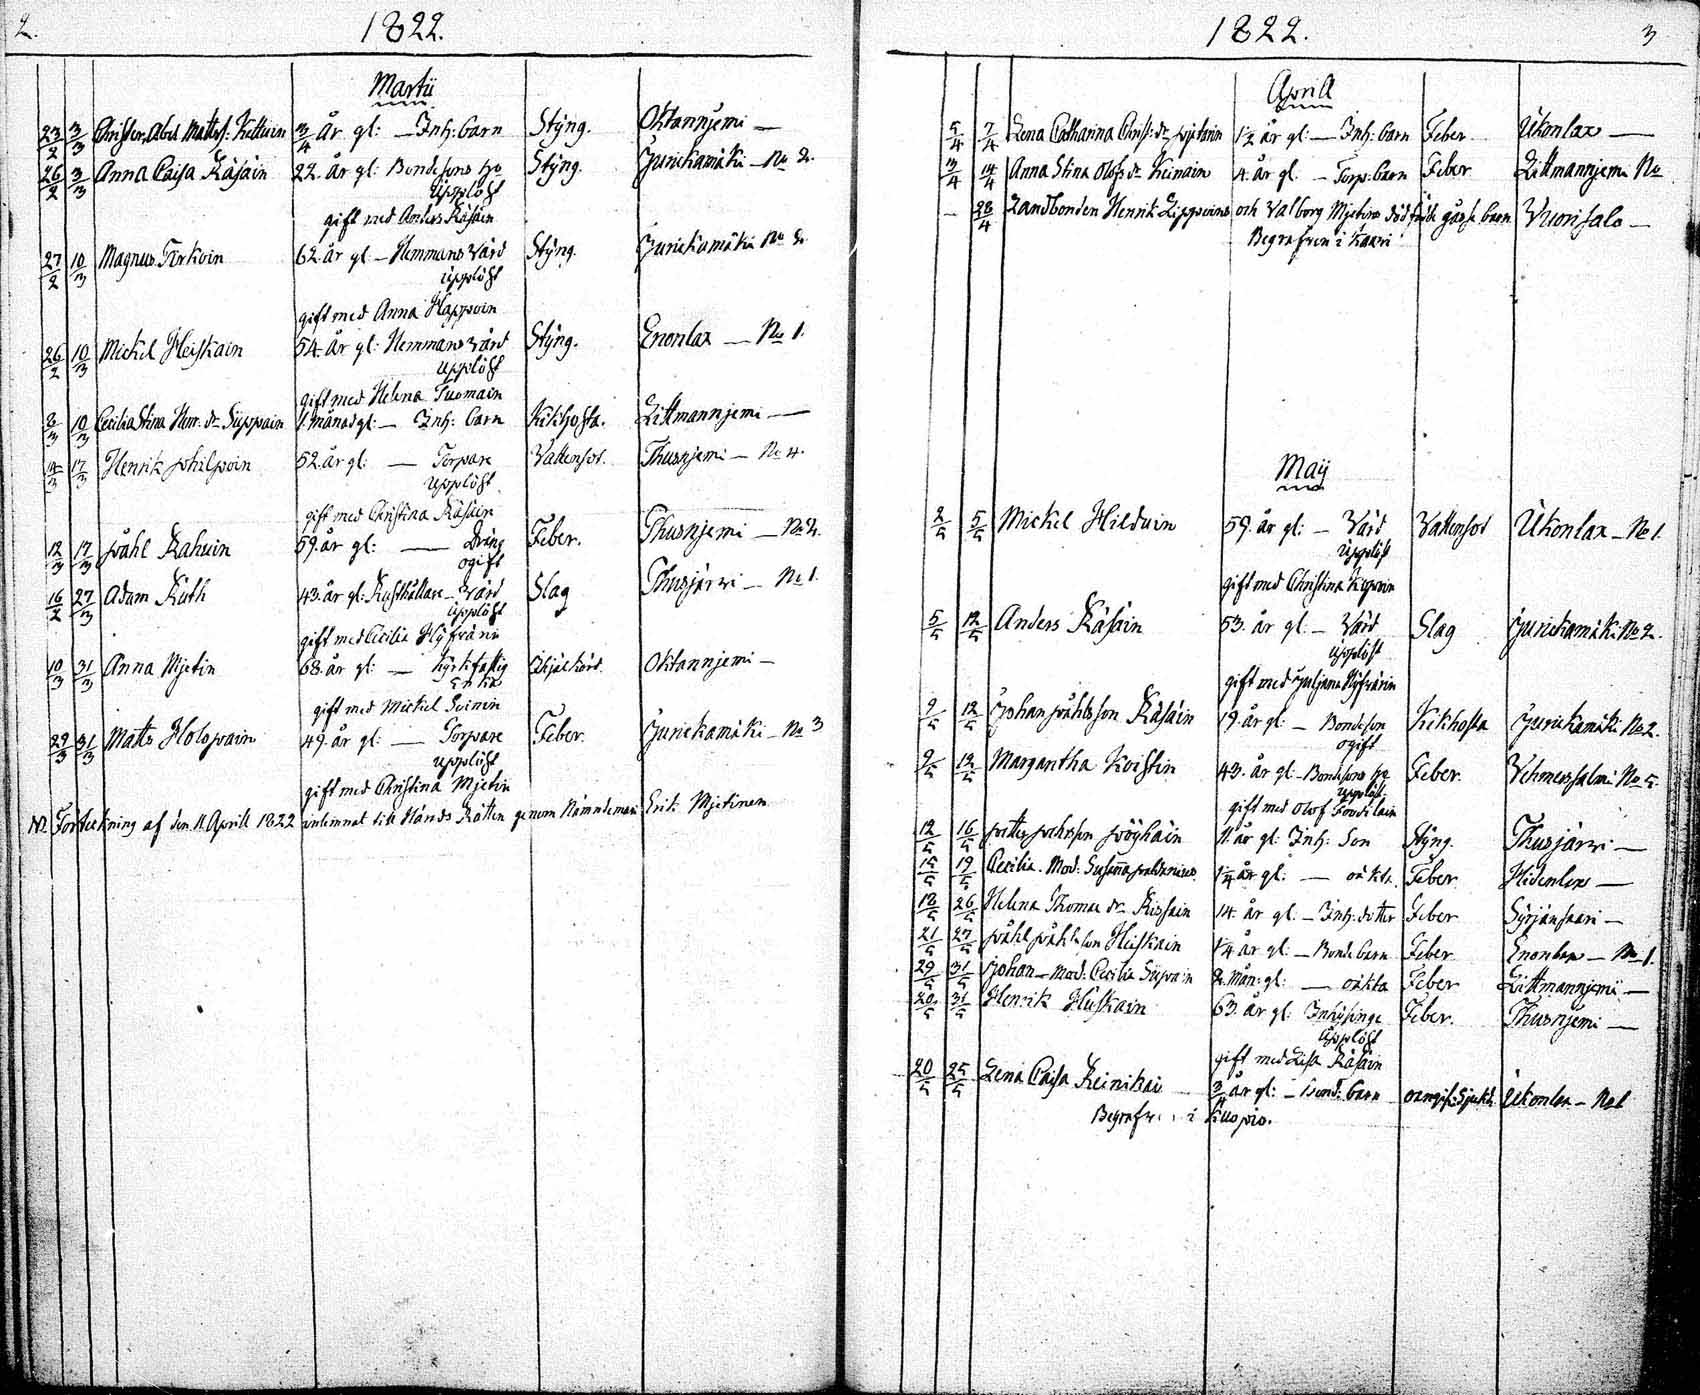 2.
1822.
Martii
23/2 3/3 Christer Abel Matts: Kettuin 3/4 år gl: — Inh: barn Styng. Oktannjemi —
26/2 3/3 Anna Caisa Räsäin 22. år gl: Bondesons hu Styng. Jurickamäki — No 2.
Upplöst
gift med Anders Räsäin
27/2 10/3 Magnus Tirkoin 62. år gl — Hemmans Värd Styng. Jurickamäki No 2.
Upplöst
gift med Anna Happoin
26/2 10/3 Mickel Heiskain 54. år gl: Hemmans värd Styng. Enonlax — No 1.
Upplöst
gift med Helena Tuomain
8/3 10/3 Cecilia Stina Henr: dr Sippain 1. månad gl: — Inh: barn Kikhosta. Littmannjemi —
14/3 17/3 Henrik 52. år gl: — Torpare Vattensot. Thusnjemi — No 4.
Upplöst
gift med Christina Räsäin
12/3 17/3 Påhl Kahuin 59. år gl: — Dräng Feber. Thusnjemi — No 2.
ogift
16/2 27/3 Adam Räth 43. år gl: Rusthållare — Värd Slag Thusjärwi — No 1.
Upplöst
gift med Cecilia Hyfvärin
10/3 31/3 Anna Mjetin 68. år gl: — Kyrkfattig Oktannjemi —
Enka
gift med Mickel Soinin
29/3 31/3 Matts Holopain 49. år gl: — Torpare Feber. Jurickamäki — No 3
Upplöst
gift med Christina Mjetin
Förteckning af den 11 Aprill 1822 inlemnat till Härads Rätten genom Nämndeman Erik Mjetinen
1822.
3
Aprill
5/4 7/4 Lena Catharina Christ: dr 1/2 år gl: — Inh: barn Feber Ukonlax —
13/4 14/4 Anna Stina Olofs dr Keinäin 4. år gl. — Torp: barn Feber Littmannjemi No
— 28/4 Landbonden Henrik Lippoins och Valborg Mjetins död födt gåsse barn Vuorisalo —
Begrafven i Kaavi
Maij
2/5 5/5 Mickel Hilduin 59. år gl: — Värd Vattensot Ukonlax — No 1.
Upplöst
gift med Christina
5/5 12/5 Anders Räsäin 53. år gl — Värd Slag Jurickamäki No 2.
Upplöst
gift med Juljana Hyfvärin
9/5 12/5 Johan Påhlsson Räsäin 19. år gl: — Bondeson Kikhosta Jurickamäki No 2.
ogift
9/5 12/5 Margaretha Koistin 43. år gl — Bondesons hu Feber. Vehmersalmi No 5.
Upplöst
gift med Olof
12/5 16/5 Petter Pehrson Pöyhäin 11. år gl: Inh: Son Styng. Thusjärwi —
15/5 19/5 Cecilia. Mod: Susanna 1/4 år gl: — oäkta Feber. Hidenlax —
18/5 26/5 Helena Thomae dr Rissain 14. år gl. — Inh: dotter Feber Syrjänsaari —
21/5 27/5 Påhl Påhlsson Heiskain 1/4 år gl: — Bonde barn Feber Enonlax — No 1.
29/5 31/5 Johan — Mod: Cecilia Sippain 2. mån: gl: — oäkta Feber Littmannjemi —
20/5 31/5 Henrik Huskain 63. år gl: Inhysinge Feber. Thusnjemi —
Upplöst
gift med Lisa Räsäin
20/5 25/5 Lena Caisa Reinikai 3/4 år gl: — Bond: barn oangif: Sjukd. Ukonlax — No 1
Begrafven i Kuopio.